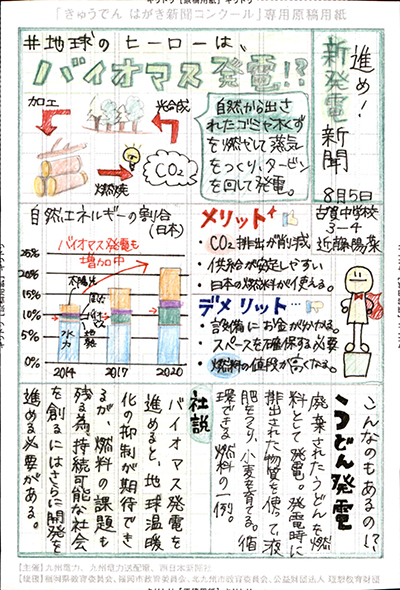 「きゅうでん はがき新聞コンクール」専用原稿用紙
進め!
新発電
新聞
8月5日
古賀中学校
3-4
近藤陽菜
#地球のヒーローは、
バイオマス発電!?
加工
光合成
燃焼
CO₂
自然から出さ
れたゴミや木くず
を燃やして蒸気
をつくり、タービン
を回して発電。
自然エネルギーの割合
(日本)
バイオマス発電も
増加中
25%
20%
15%
10%
5%
0%
太陽光
風力
バイオマス
地熱
水力
2014
2017
2020
メリット+
・CO₂排出が削減
・供給が安定しやすい
・日本の燃料が使える。
デメリット…
・設備にお金がかかる。
・スペースを確保する必要
・燃料の値段が高くなる。
こんなのもあるの!?
うどん発電
廃棄されたうどんを燃
料として発電。発電時に
排出された物質を使って液
肥をつくり、小麦を育てる。循
環できる燃料の一例。
社説
バイオマス発電を
進めると、地球温暖
化の抑制が期待でき
るが、燃料の課題も
残る為、持続可能な社会
を創るにはさらに開発を
進める必要がある。
[主催]九州電力、九州電力送配電、西日本新聞社
[後援]福岡県教育委員会、福岡市教育委員会、北九州市教育委員会、公益財団法人 理想教育財団